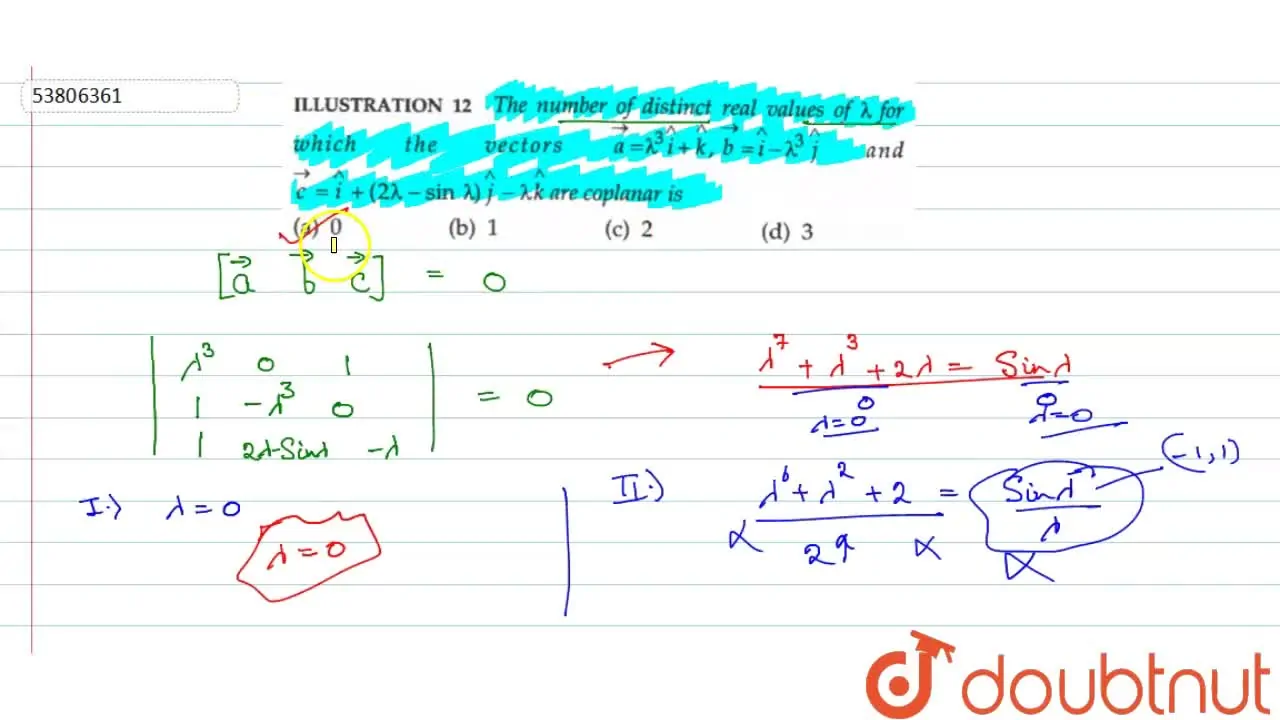 53806361
ILLUSTRATION 12 The number of distinct real values of λ for
which the vectors a⃗ = λ³î + k̂, b⃗ = î − λ³ĵ and
c⃗ = î + (2λ − sin λ)ĵ − λk̂ are coplanar is
(a) 0 (b) 1 (c) 2 (d) 3
[a⃗ b⃗ c⃗] = 0
λ³ 0 1
1 −λ³ 0 = 0
1 2λ-Sinλ −λ
→ λ⁷ + λ³ + 2λ = Sinλ
0 0
λ=0 λ=0
I.) λ = 0
λ = 0
II.) λ⁶ + λ² + 2 = Sinλ / λ
(−1, 1)
doubtnut